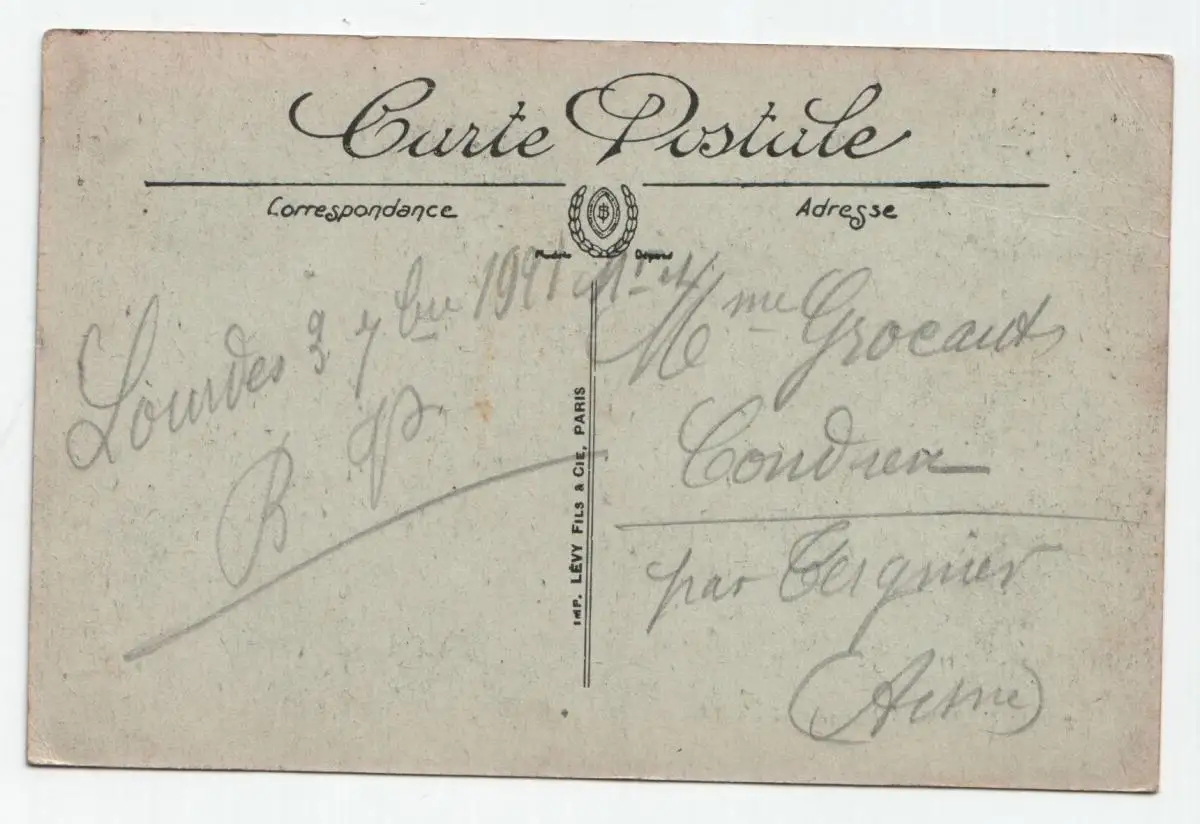 Carte Postale
Correspondance
Adresse
Modèle Déposé
Lourdes 3 7bre
Mme Grocaut
Condren
par Tergnier
(Aisne)
B. P.
IMP. LÉVY FILS & CIE, PARIS